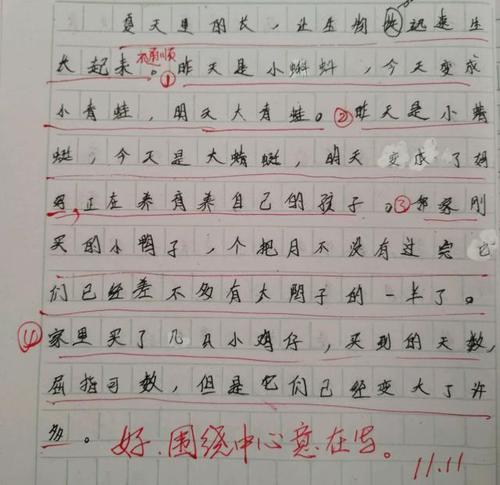 夏天里的长，让生物快速生
长起来。①昨天是小蝌蚪，今天变成
小青蛙，明天大青蛙。②昨天是小蜻
蜓，今天是大蜻蜓，明天变成了妈
妈，正在养育养自己的孩子。③邻家刚
买的小鸭子，个把月不没有过完它
们已经差不多有大鸭子的一半了。
④家里买了几只小鸡仔，买到的天数，
屈指可数，但是它们已经变大了许
多。好.围绕中心意在写。
11.11